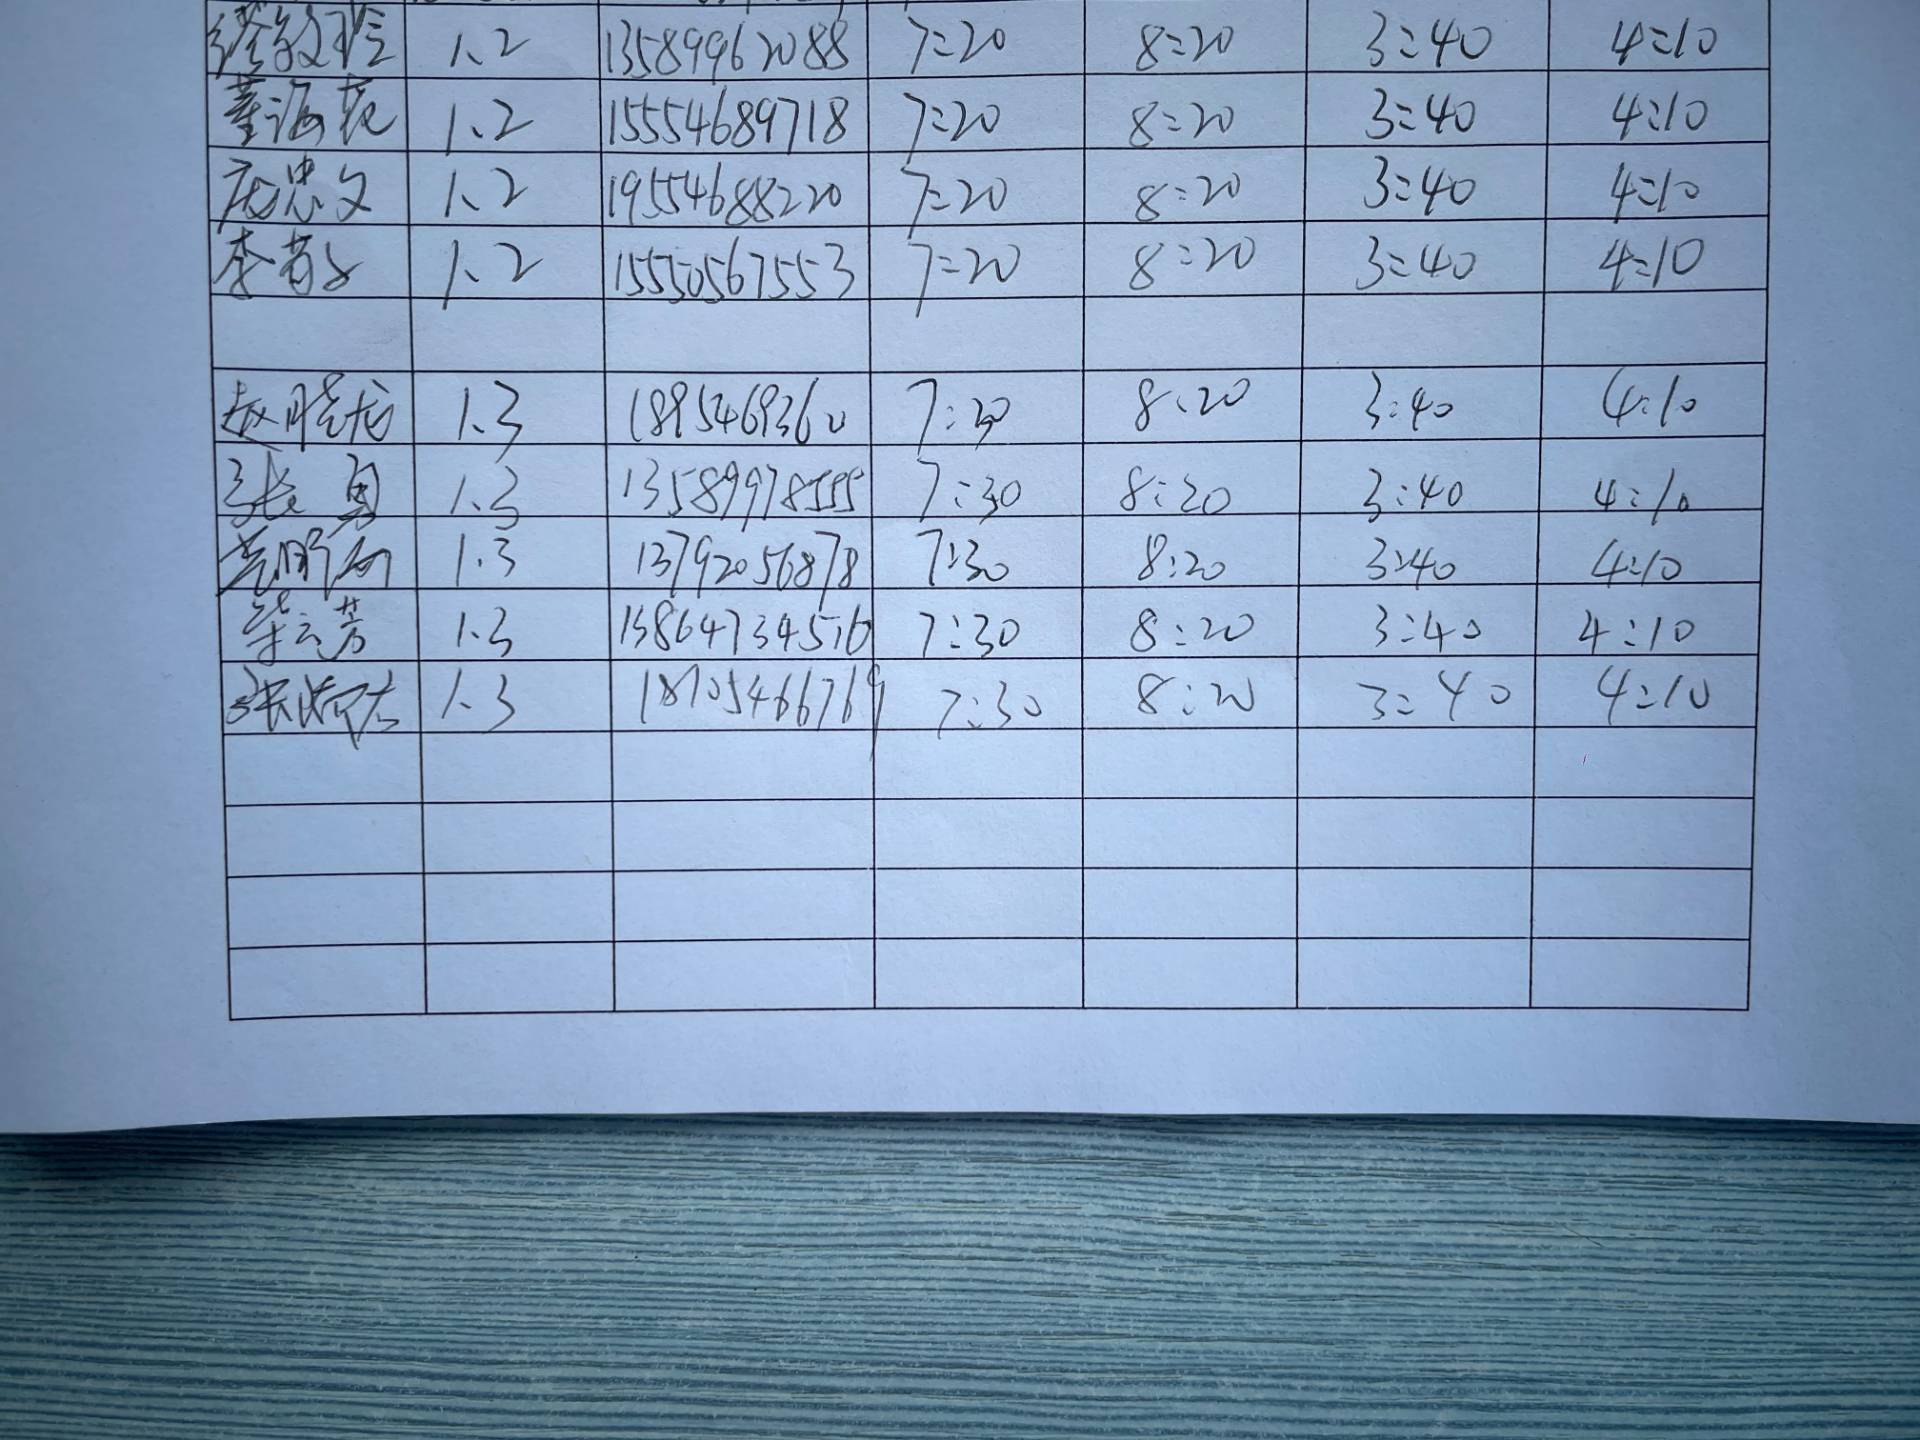 1.2 13589962088 7:20 8:20 3:40 4:10
董海花 1.2 15554689718 7:20 8:20 3:40 4:10
庞忠文 1.2 19554688220 7:20 8:20 3:40 4:10
李 1.2 15550567553 7:20 8:20 3:40 4:10
赵晓龙 1.3 7:30 8:20 3:40 4:10
张勇 1.3 13589978555 7:30 8:20 3:40 4:10
1.3 13792056878 7:30 8:20 3:40 4:10
云芳 1.3 13864734516 7:30 8:20 3:40 4:10
张 1.3 18705466769 7:30 8:20 3:40 4:10